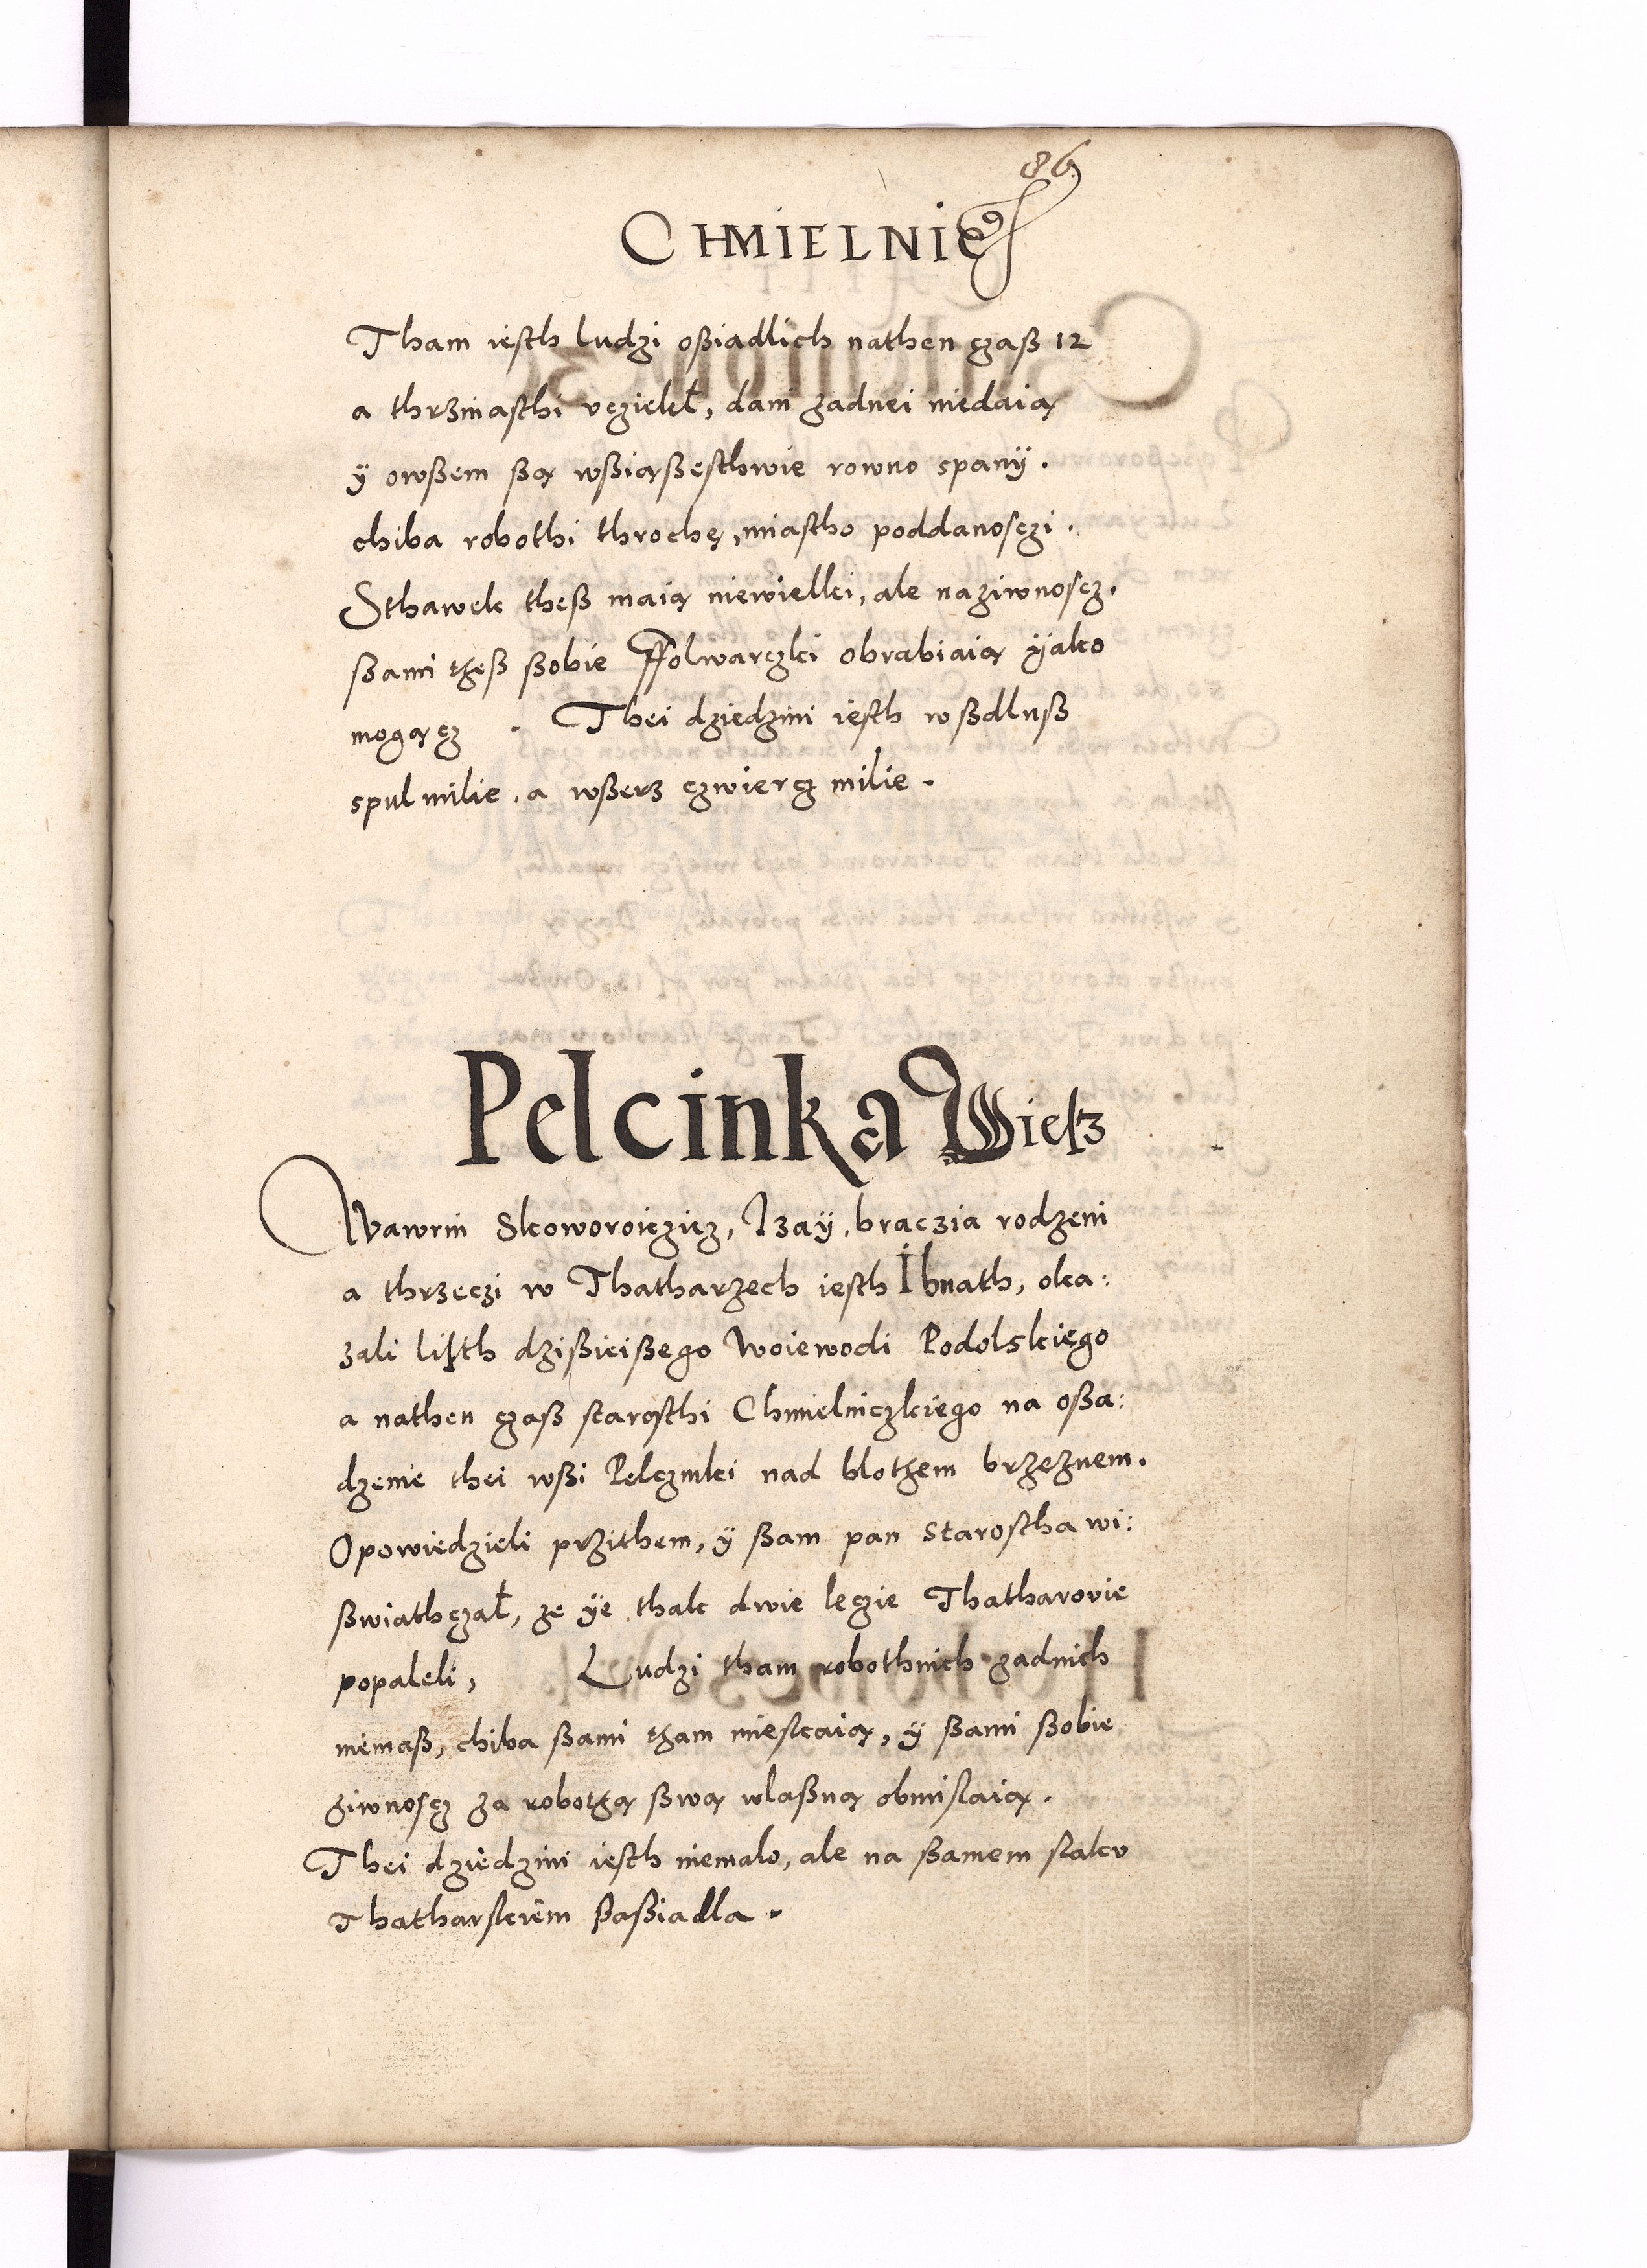 86
CHMIELNIC
Tham iesth ludzi oßiadlich nathen czaß 12
a thrzinasthi vcziekł, dani zadnei niedaią
ÿ owßem ßą wßiąßesthwie rowno spanÿ.
chiba robothi throchę, miastho poddanosczi.
Sthawek theß maią niewielki, ale naziwnoscz.
ßami theß ßobie ffolwarczki obrabiaią ÿako
mogącz . Thei dziedzini iesth wßdluß
spul milie, a wßerz czwiercz milie.
Pelcinka Wiesz
Wawrin Skoworoiczicz, Izaÿ, braczia rodzeni
a thrzeczi w Thatharzech iesth Ihnath, oka:
zali listh dzißieißego Woiewodi Podolskiego
a nathen czaß starosthi Chmielniczkiego na oßa:
dzenie thei wßi Pelczinki nad blothem brzeznem.
Opowiedzieli przithem, ÿ ßam pan Starostha wi:
ßwiathczał, ze ÿe thak dwie lezie Thatharovie
popaleli, Ludzi tham robothnich zadnich
niemaß, chiba ßami tham mieskaią, ÿ ßami ßobie
ziwnoscz za robothą ßwą wlaßną obmislaią.
Thei dziedzini iesth niemalo, ale na ßamem slaku
Thatharskiem ßaßiadla.